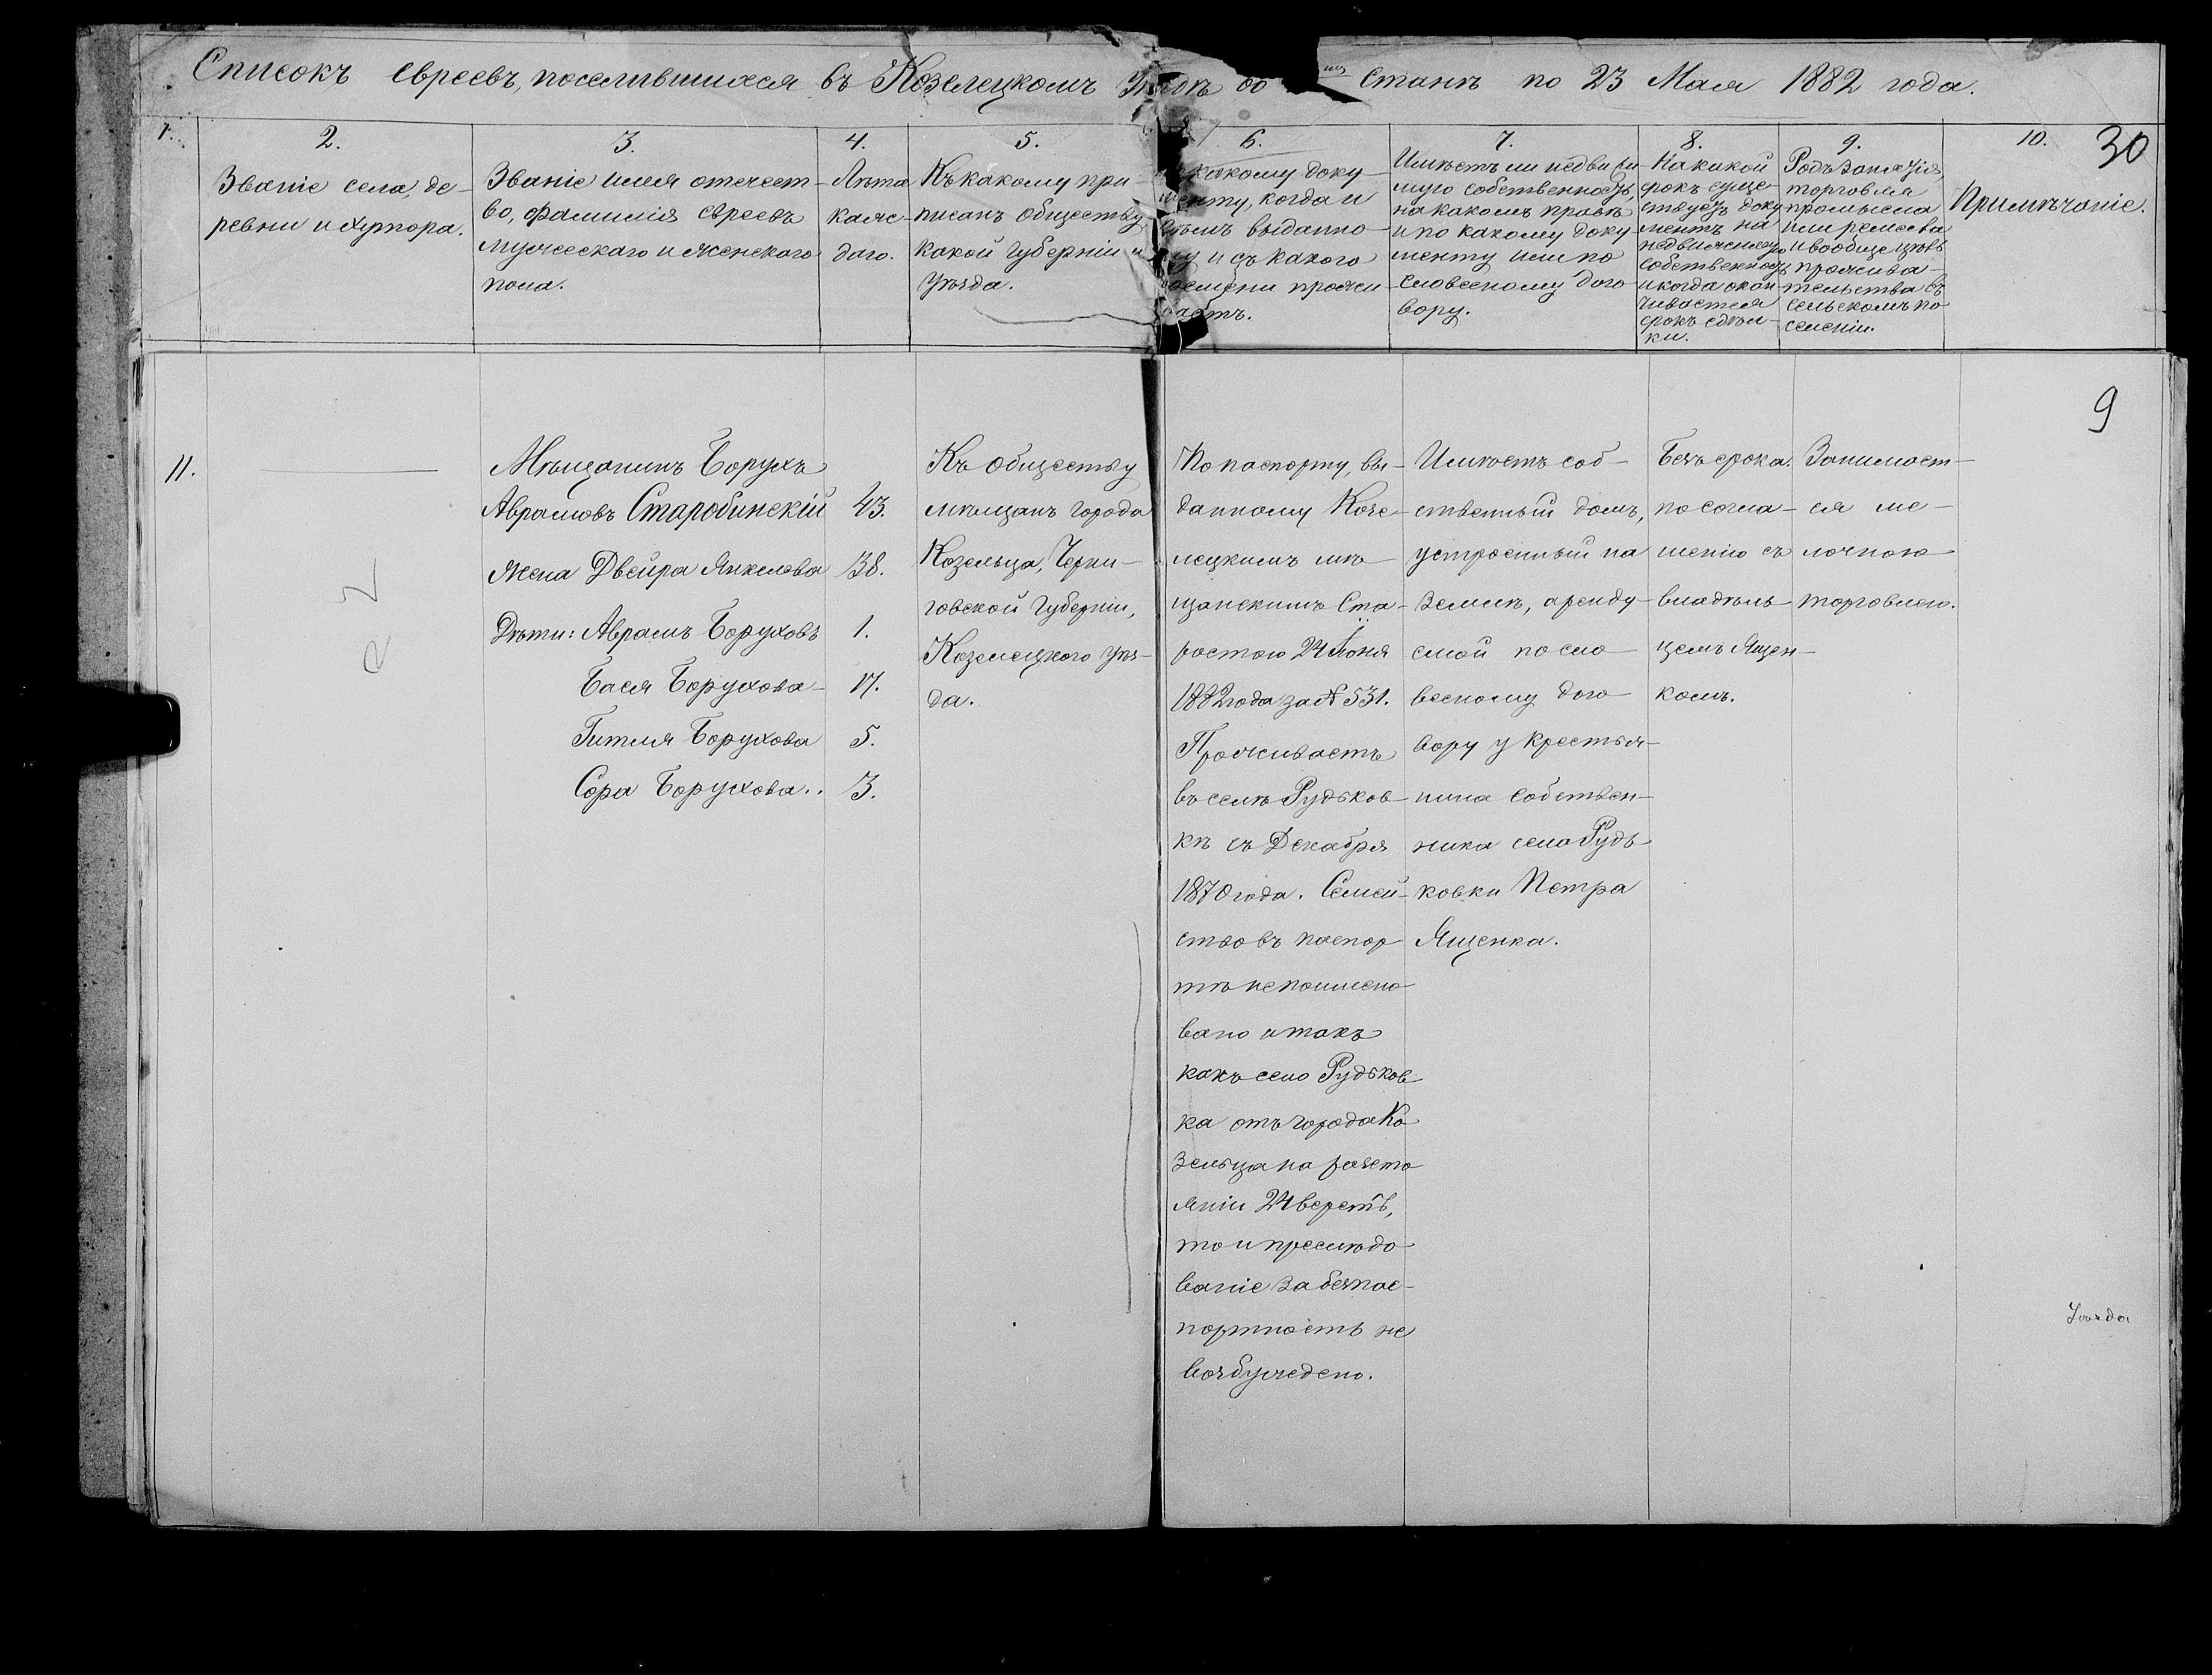 Списокъ евреевъ, поселившихся въ Козелецкомъ Уѣздѣ во Станѣ по 23 Мая 1882 года.
1.
2.
Званіе села, де-
ревни и хутора.
3.
Званіе имя отечест-
во, фамилія евреевъ
мужескаго и женскаго
пола.
4.
Лѣта
каж-
даго.
5.
Къ какому при-
писанъ обществу
какой губерніи и
уѣзда.
6.
какому доку-
менту, когда и
кѣмъ выданно-
му и съ какого
времени прожи-
ваетъ.
7.
Имѣетъ ли недвижи
мую собственность,
на какомъ правѣ
и по какому доку-
менту или по
словесному дого-
вору.
8.
На какой
срокъ суще-
ствуетъ доку
ментъ на
недвижимую
собственность
и когда окан-
чивается
срокъ сдѣл-
ки.
9.
Родъ занятія,
торговля
промысла
или ремесла
и вообще цѣль
прожива-
тельства въ
сельскомъ по
селеніи.
10.
Примѣчаніе.
30
9
11.
Мѣщанинъ Борухъ
Авраmовъ Старобинскій 43.
Жена Двейра Янкелева 38.
Дѣти: Аврамъ Боруховъ 1.
Бася Борухова 17.
Гитля Борухова 5.
Сора Борухова.. 3.
Къ обществу
мѣщанъ города
Козельца, Черни-
говской губерніи,
Козелецкого уѣз-
да.
По паспорту, вы-
данному Козе-
лецкимъ мѣ-
щанскимъ Ста-
ростою 24 Іюня
1882 года за № 531.
Проживаетъ
въ селѣ Рудьков-
кѣ съ Декабря
1870 года. Семей-
ство въ паспор
тѣ непоимено
вано и такъ
какъ село Рудьков
ка отъ города Ко
зельца на разсто
яніи 24 верстъ,
то и преслѣдо
ваніе за безпас-
портность не
возбуждено.
Имѣетъ соб-
ственный домъ,
устроенный на
землѣ, аренду-
емой по сло
весному дого
вору у крестья-
нина собствен-
ника села Рудь
ковки Петра
Ященка.
Безъ срока.
по согла-
шенію съ
владѣль
цемъ Ящен-
комъ.
Занимает-
ся ме-
лочною
торговлею.